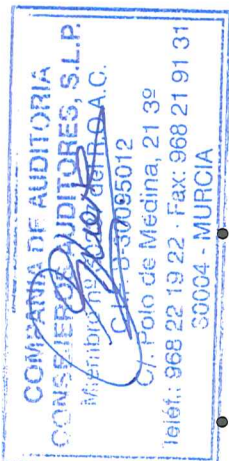 COMPAÑIA DE AUDITORIA
CONSEJEROS AUDITORES, S.L.P.
Miembro nº del R.O.A.C.
30095012
C/. Polo de Medina, 21 3º
Teléf.: 968 22 19 22 - Fax: 968 21 91 31
30004 - MURCIA